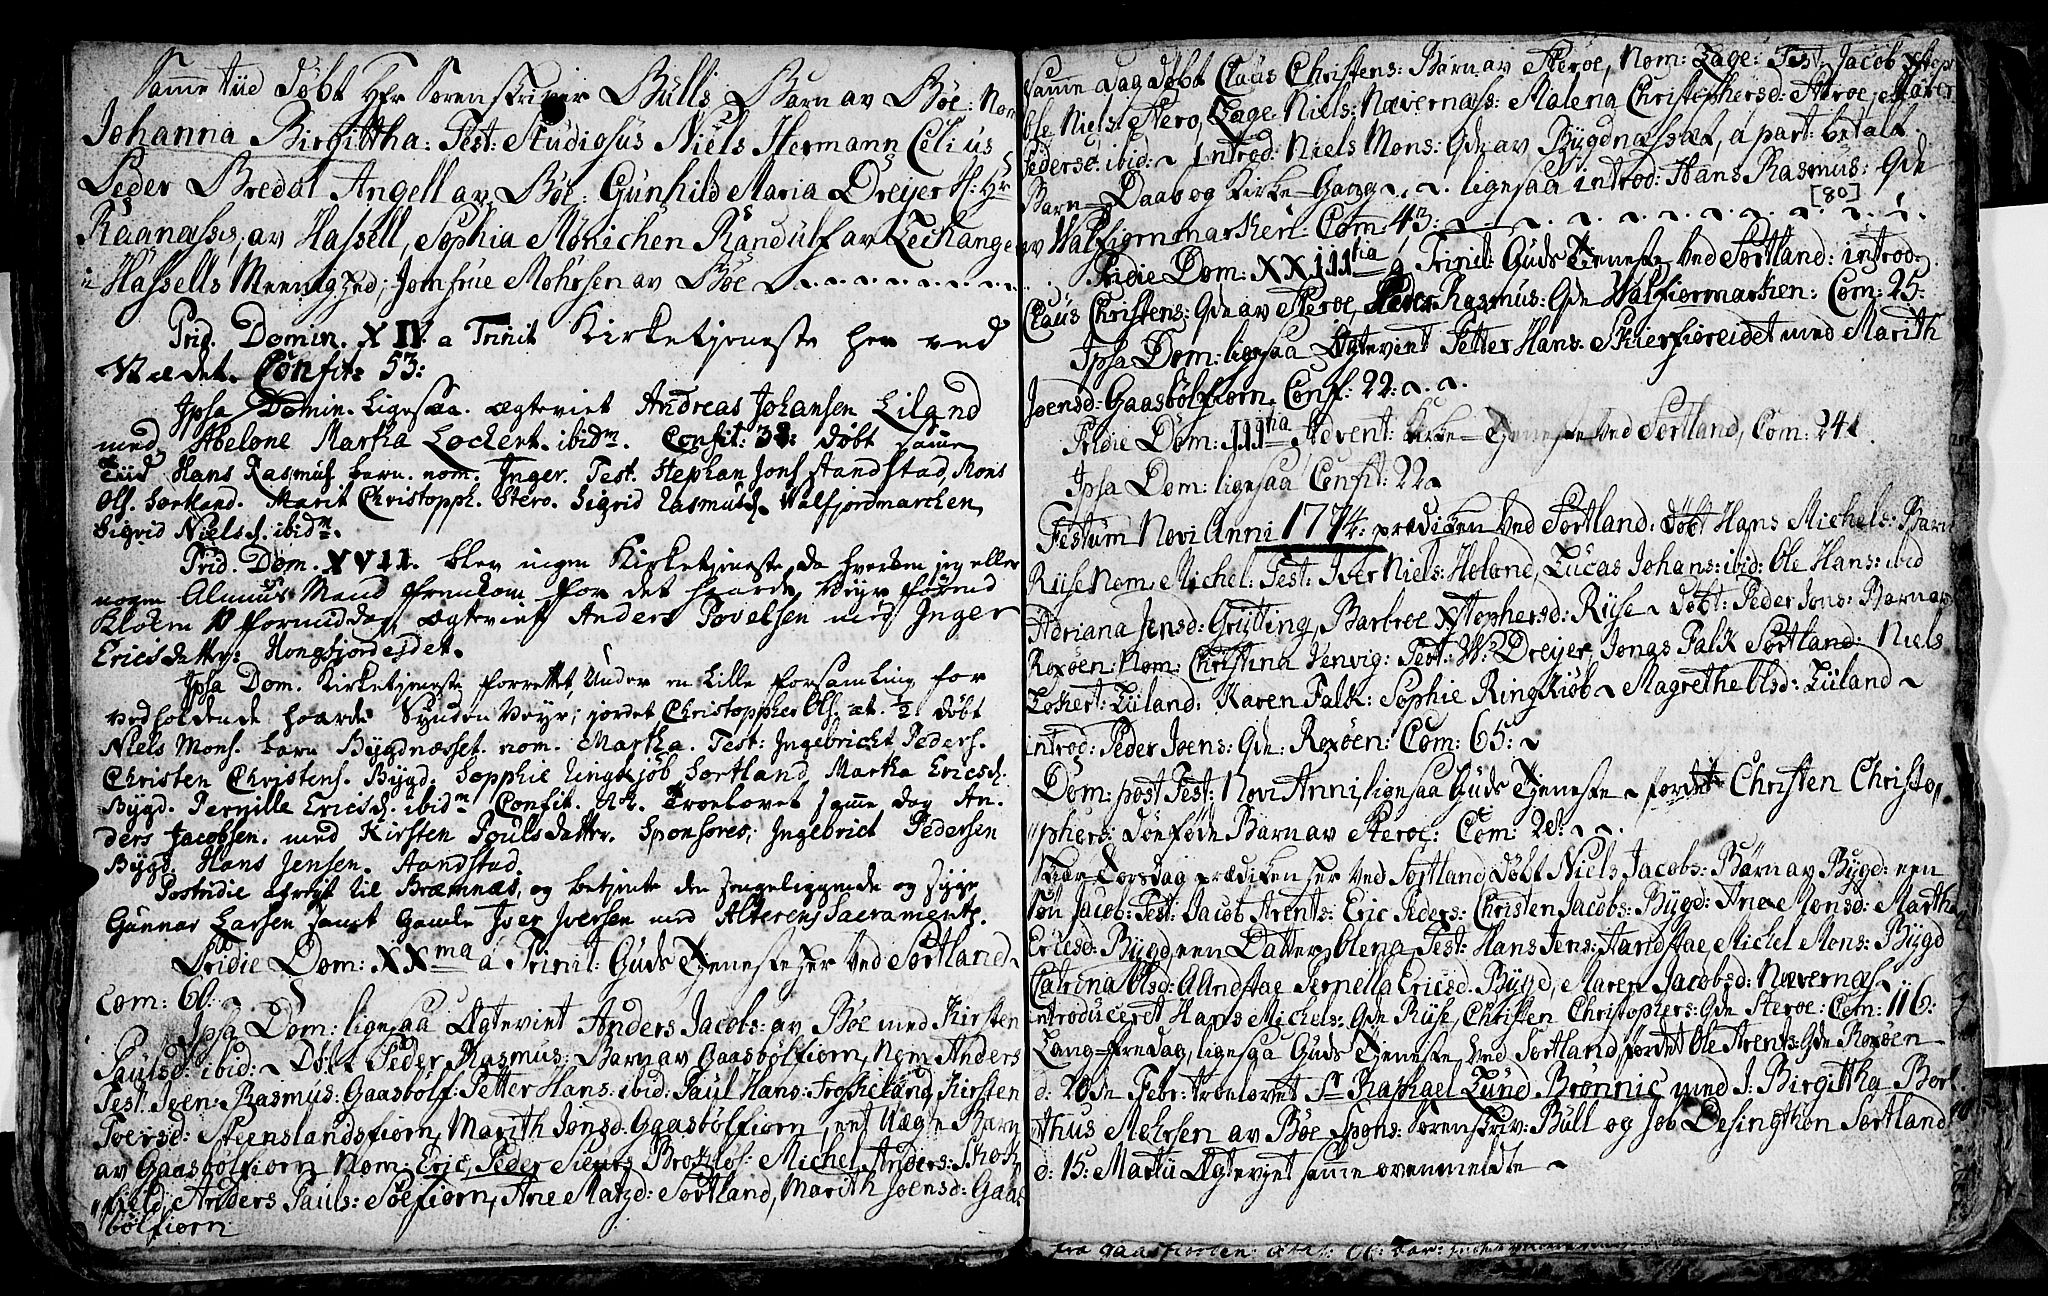 Samme tiid døbt Hr Sorenskriver Bulls Barn av Bøe: Nom
Johanna Birgittha: Test: Studiosus Niels Hermann Celius
Peder Bredal Angell av Bøe: Gunhild Maria Dreyer
Raanæsset, av Hassell, Sophia Mønichen Randulf av
i Hassells Meenighed, Jomfrue Mohrsen av Bøe
Prid. Domin. XIV a Trinit Kirketjeneste her ved
Stædet. Confit: 53:
Ipsa Domin. Ligesaa. ægteviet Andreas Johansen Liland
med Abelone Martha Lochert. ibidm. Confit: 38: døbt samme
Tiid Hans Rasmus. barn. nom: Inger. Test. Stephan Jons Standstad, Mons
Ols. Sortland. Marit Christopph. Stero. Sigrid Rasmusd. Walfjordmarchen
Sigrid Nielsd. ibidm.
Prid. Dom. XVII. blev ingen Kirketjeneste, da hverken jeg eller
nogen Almues Mand fremkom for det haarde Veyr førend
Kloken 10 formiddag, ægteviet Anders Povelsen med Inger
Ericsdatter Hongfjordejdet.
Ipsa Dom. Kirketjeneste forrettet, Under en Lille forsamling for
vedholdende haarde Synden Veyr; jordet Christoppher Ols. æt. 1/2. døbt
Niels Mons. barn Bygdnæsset. nom. Martha. Test: Ingebricht Peders.
Christen Christens. Bygd. Sopphie Ringkjøb Sortland, Martha Ericsd.
Bygd. Pernille Ericsd. ibidm Confit. Troelovet samme dag An-
ders Jacobsen. med Kirsten Poulsdatter. Sponsores; Ingebrict Pedersen
Bygd. Hans Jensen. Aandstad.
Postridie afrejst til Bræmnæs, og betjente den sengeliggende og syge
Gunnar Larsen samt Gamle Iver Iversen med Alterens Sacramente.
Pridie Dom: XXma á Trinit: Guds Tjeneste her Ved Sortland
Com: 60:
Ipsa Dom: ligesaa Ægteviet Anders Jacobs: av Bøe med Kirsten
Paulsd: ibid: Døbt Peder Rasmus: Barn av Gaasbølfiorn, Nom: Anders
Test: Joen Rasmus: Gaasbølf: Petter Hans: ibid: Paul Hans: Kirsten
Joersd: Steenslandsfiorn, Marith Jonsd: Gaasbølfiorn, ent Uægte Barn
av Gaasbølfiorn Nom: Eric, Peder Sieurs Michel Anders: Skog
field, Anders Pauls: Søefiorn, Ane Matzd: Sortland, Marith Joensd: Gaas
bølfiorn
Samme dag døbt Claus Christens: Barn av Steroe, Nom: Lage: Test: Jacob Xstop
Niels: Stero, Lage Niels: Nævernæs: Malena Christophersd: Steroe, Maren
Pedersd: ibid: Introd: Niels Mons: Qde av Bygdnæsset, a part betalt
Barn-Daab og Kirke-Gang. ligesaa introd: Hans Rasmus: Qde
[80]
av Walfiormarken: Com: 43:
Pridie Dom: XXIIItia á Trinit: Guds Tjeneste Ved Sortland: introd:
Claus Christens: Qde av Steroe, Peder Rasmus: Qde Walfiormarken: Com: 25:
Ipsa Dom: ligesaa Ægteviet Petter Hans: Skierfioreidet med Marith
Joensd: Gaasbølfiorn, Conf: 22:
Pridie Dom: IIItia Advent: Kirke-Tjeneste Ved Sortland, Com: 24
Ipsa Dom: ligesaa Confit: 22
Festum Novi Anni 1774: prædiken Ved Sortland: døbt Hans Michels: Barn
Riise Nom: Michel: Test: Iver Niels: Holand, Lucas Johans: ibid: Ole Hans: ibid
Adriana Jensd: Grytting, Barbroe Xstophersd: Riise døbt: Peder Jons: Barn av
Roxøen: Nom: Christina Venvig: Test: Dreyer Jonas Falk Sortland: Niels
Lokert: Liiland: Karen Falk: Sophie Ringkiøb Magrethe Olsd: Liiland
introd: Peder Joens: Qde: Roxøen: Com: 65:
Dom: post Fest: Novi Anni, ligesaa Guds Tjeneste fordet Christen Christo
phers: dønføde Barn av Steroe: Com: 20:
Skier Torsdag prædiken her Ved Sortland, Døbt Niels Jacobs: Barn av Bygd: een
Søn Jacob: Test: Jacob Arents: Eric Peders: Christen Jacobs: Bygd: Ane Monsd: Martha
Ericsd: Bygd een Datter Olena, Test: Hans Jens: Aandstae, Michel Mons: Bygd
Catrina Olsd: Aandstae Pernella Ericsd: Bygd, Maren Jacobsd: Nævernæs
introduceret Hans Michels: Qde Riise, Christen Christophers: Qde Steroe: Com: 116:
Lang-fredag, ligesaa Guds Tjeneste, Ved Sortland, fordet Ole Arents: Qde Roxøen
d: 20de Febr: troelovet Sr Raphael Lund Brønnic med J. Birgittha Bor
thus Mohrsen av Bøe Spons: Sorenskriv: Bull og Job Desingthon Sortland
d: 15: Martii Ægteviet samme ovenmeldte